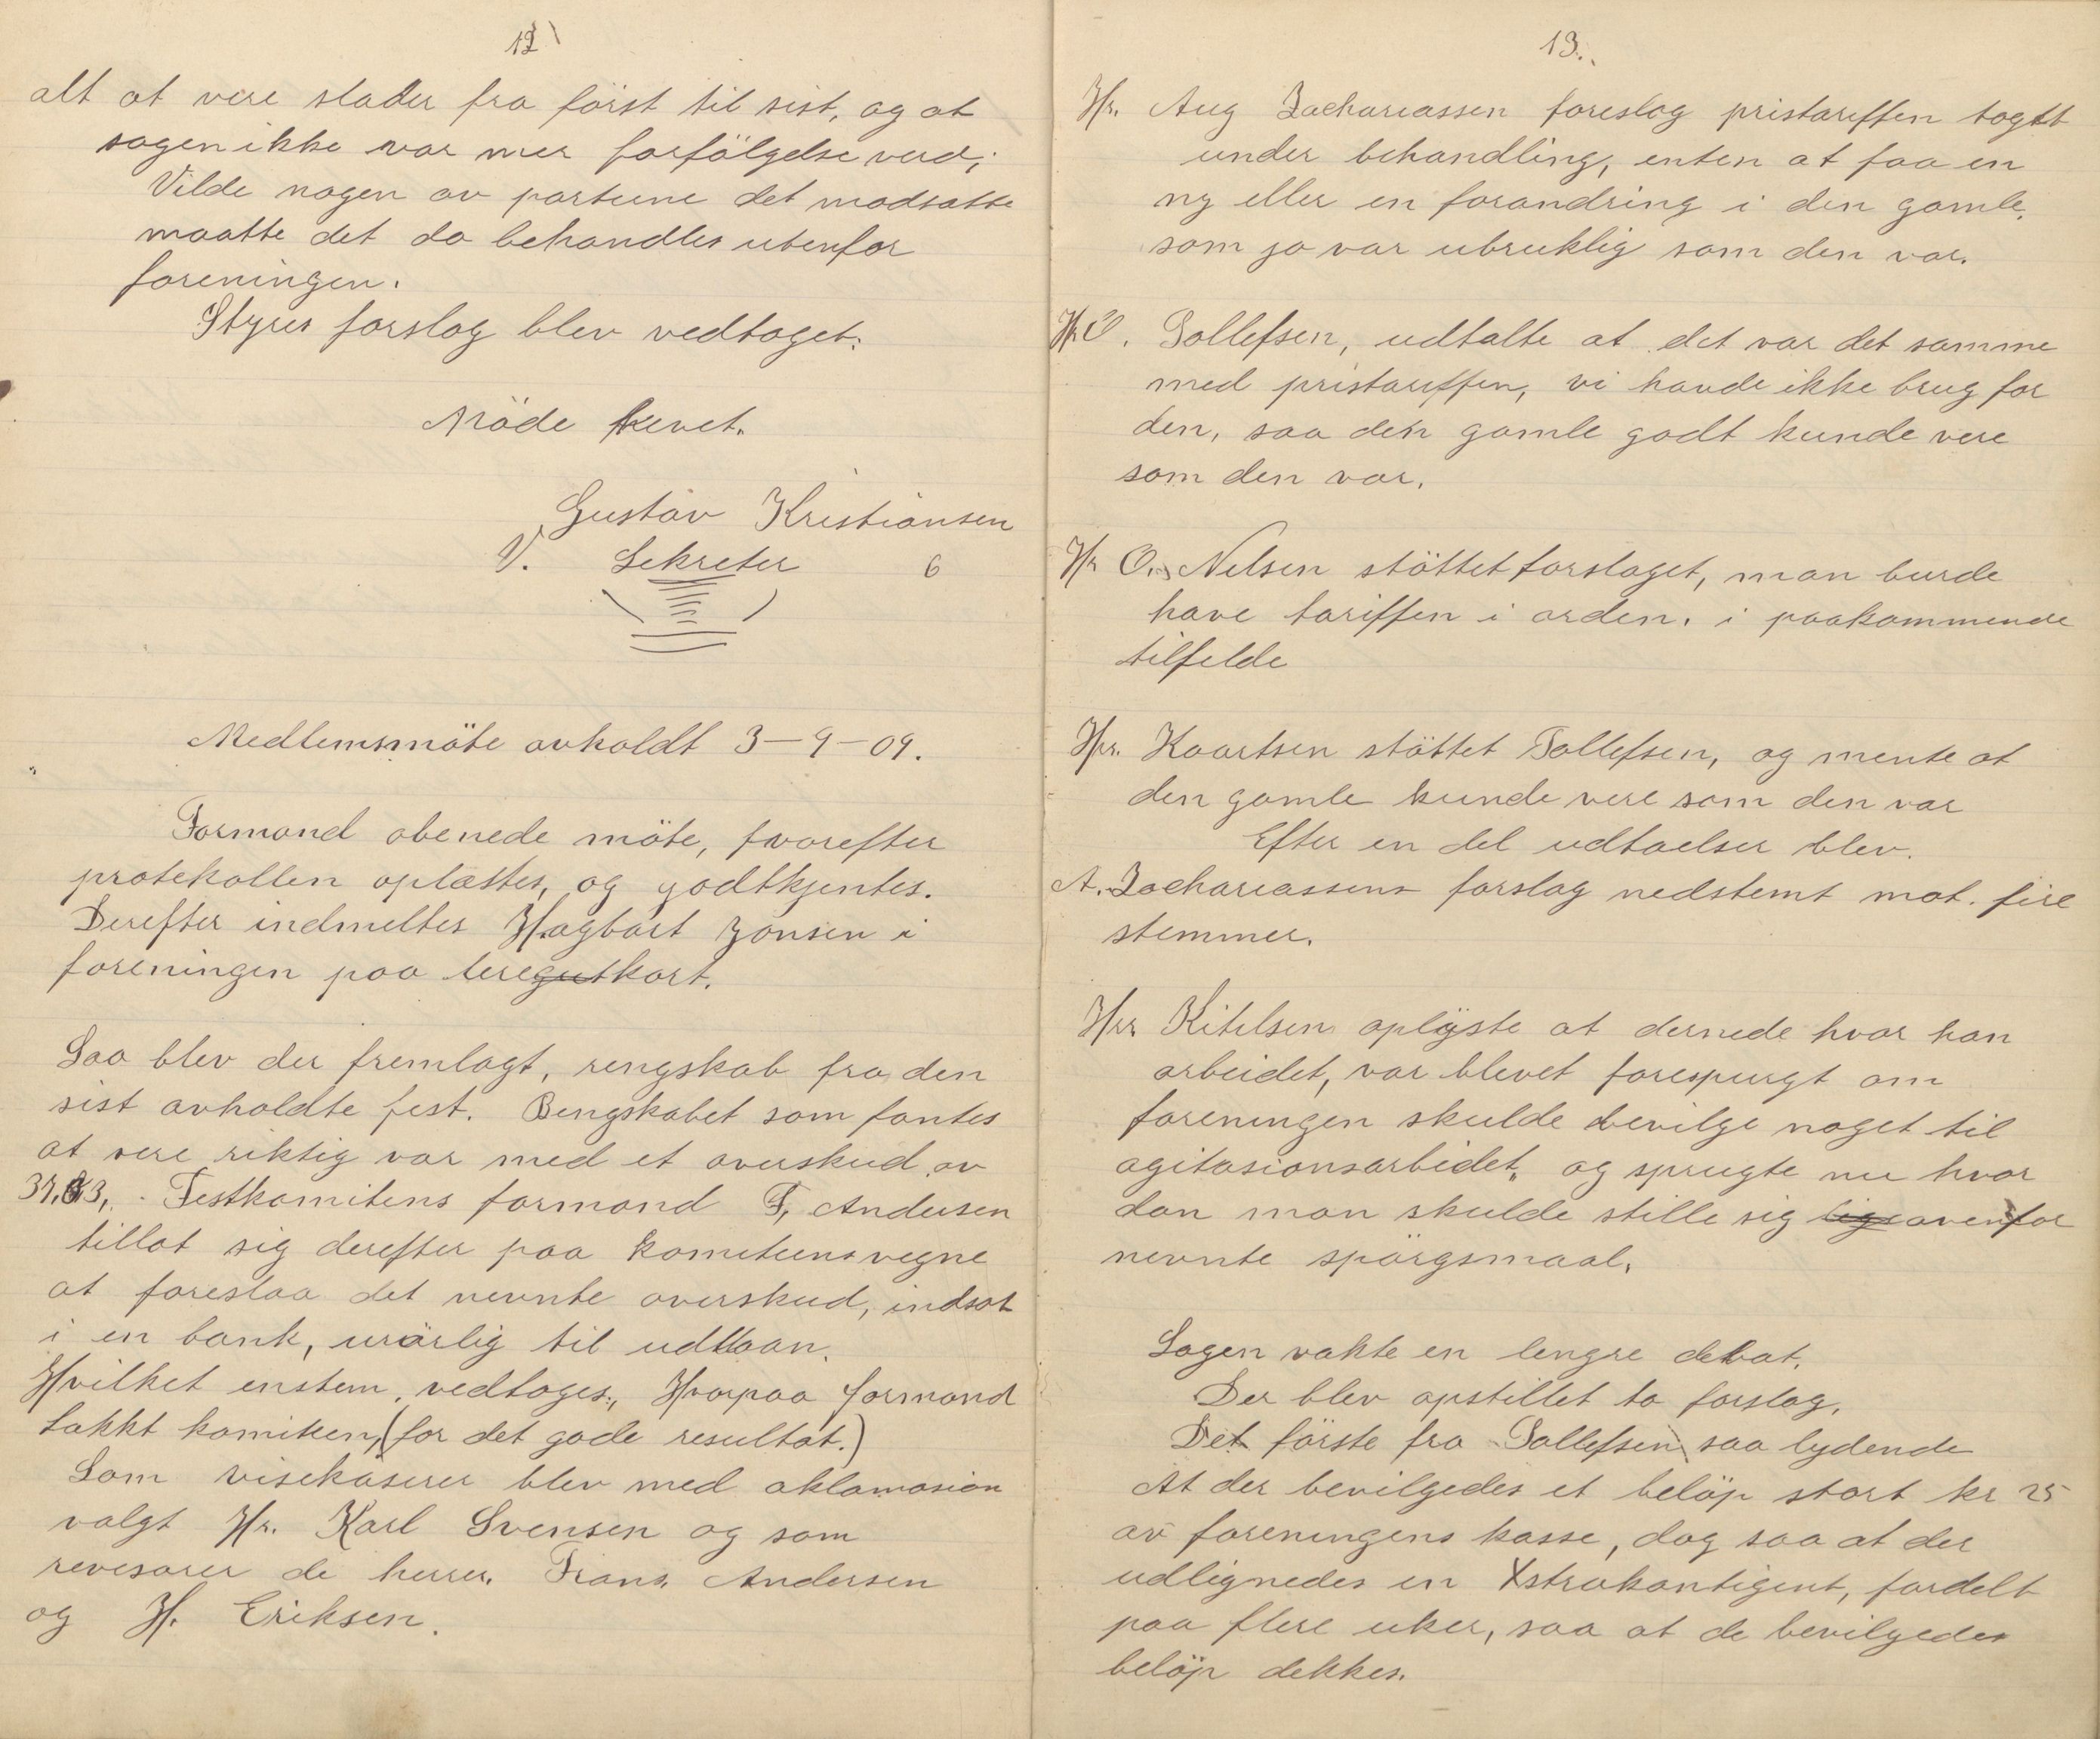 12
alt at vere slader fra först til sist, og at
sagen ikke var mer forfölgelse verd,;
Vilde nogen av parterne det modsatte
maatte det da behandles utenfor
foreningen.
Styres forslag blev vedtaget.
Möde hevet.
Gustav Kristiansen
V. Sekreter 6
Medlemsmöte avholdt 3-9-09.
Formand abenede möte, hvorefter
protekollen oplæstes, og godtkjentes.
Derefter indmeltes Hagbart Jonsen i
foreningen paa leregutkort.
Saa blev der fremlagt, rengskab fra den
sist avholdte fest. Rengskabet som fantes
at vere riktig var med et overskud av
Festkomitens formand F, Andersen
tillot sig derefter paa komiteens vegne
at foreslaa det nevnte overskud, indsat
i en bank, urörlig til udlaan.
Hvilket enstem. vedtoges., Hvorpaa formand
takkt komiteen, (for det gode resultat.)
Som visekaserer blev med aklamasion
valgt Hr. Karl Svensen og som
revesorer de herrer. Frans. Andersen
og H. Eriksen.
13.
Hr. Aug Zachariassen foreslog pristariffen togtt
under behandling, enten at faa en
ny eller en forandring i den gamle,
som jo var ubruklig som den var.
Hr O. Tollefsen, udtalte at det var det samme
med pristariffen, vi havde ikke brug for
den, saa den gamle godt kunde vere
som den var.
Hr O. Nelsen stöttet forslaget, man burde
have tariffen i orden. i paakommende
tilfelde
Hr. Kaartsen stöttet Tollefsen, og mente at
den gamle kunde vere som den var
Efter en del udtaelser blev.
A. Zachariassens forslag nedstemt mot. fire
stemmer.
Hrr Kitilsen oplyste at dernede hvor han
arbeidet, var blevet forespurgt om
foreningen skulde bevilge noget til
agitasionsarbidet, og sprugte nu hvor
dan man skulde stille sig lige ovenfor
nevnte spörgsmaal.
Sagen vakte en lengre debat.
Der blev opstillet to forslag.
Det förste fra Tollefsen saa lydende
At der bevilgedes et belöp stort kr 25
av foreningens kasse, dog saa at der
udlignedes en Xstrakontigent, fordelt
paa flere uker, saa at de bevilgedes
belöp dekkes.